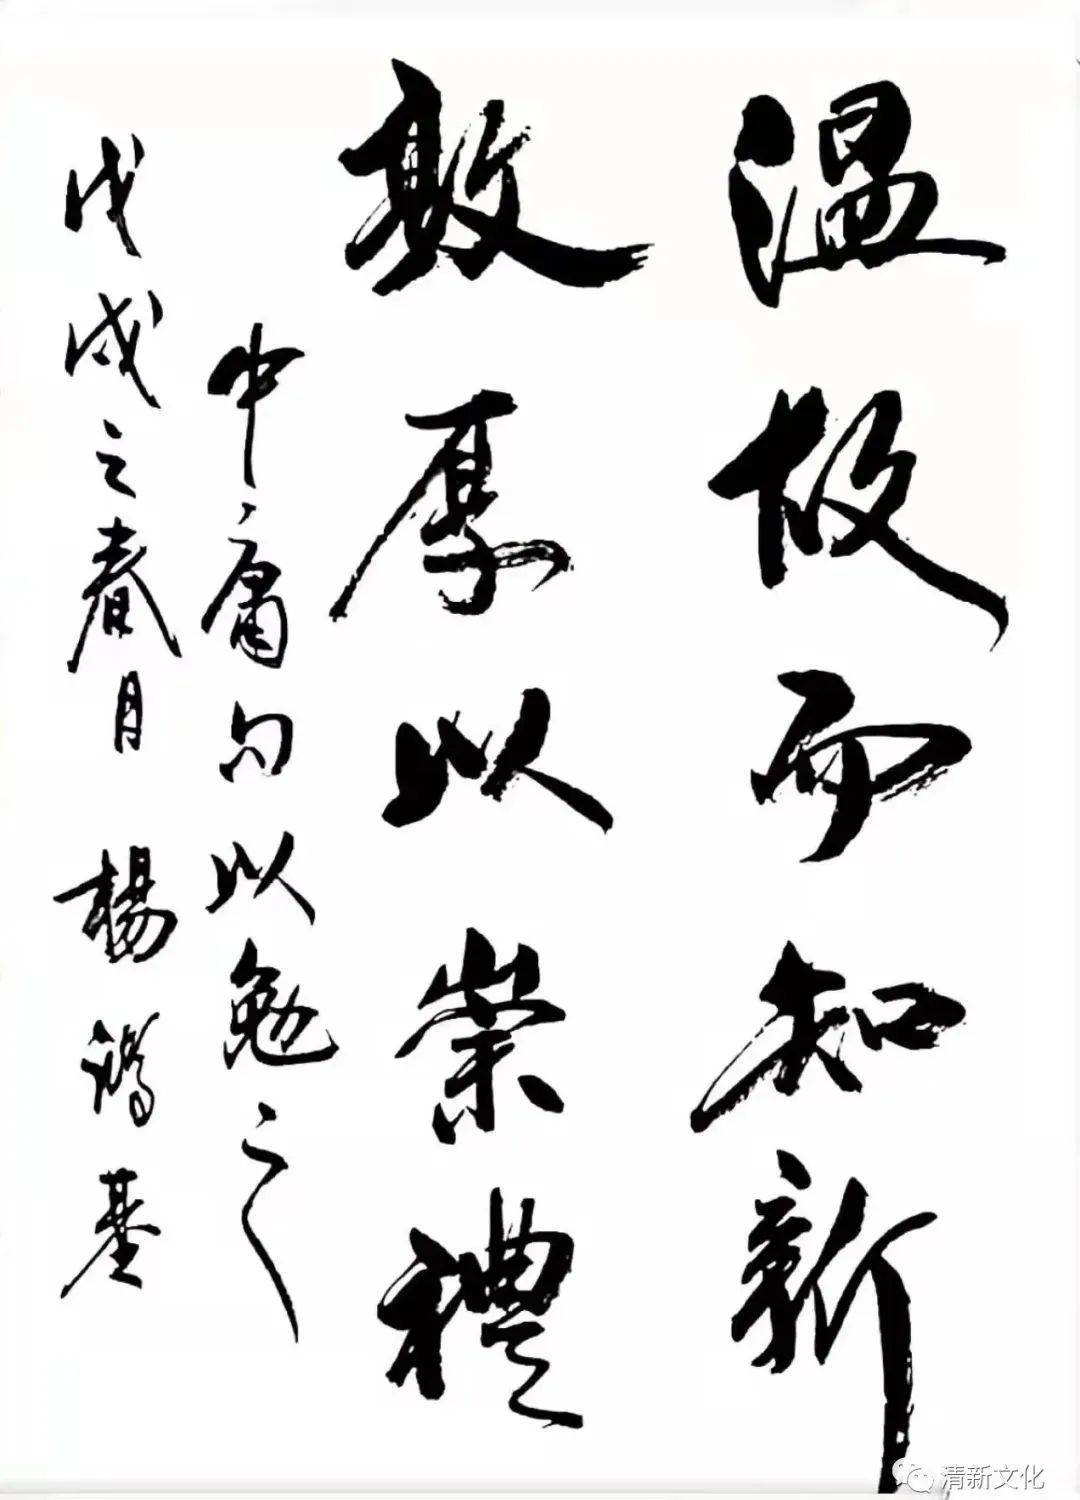 温故而知新
敦厚以崇禮
中庸句以勉之
戊戌之春月 楊鴻基
清新文化